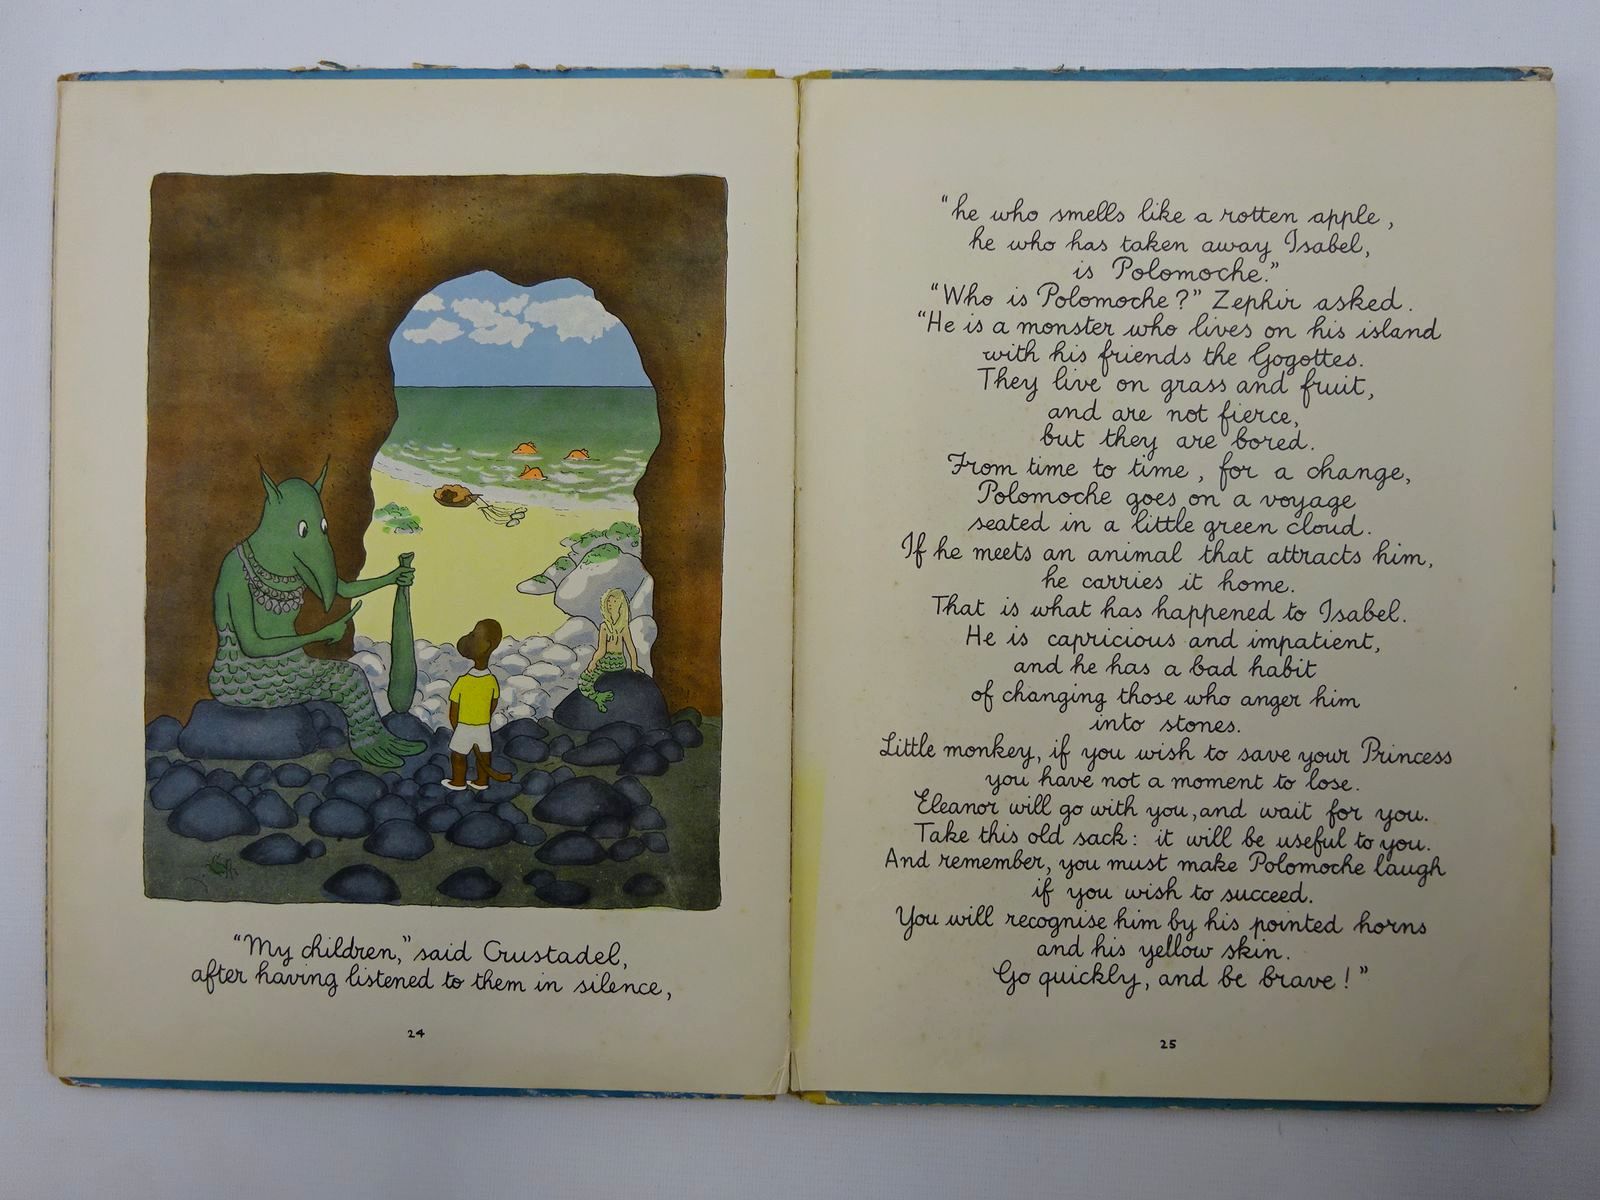 "My children," said Crustadel,
after having listened to them in silence,
24
"he who smells like a rotten apple,
he who has taken away Isabel,
is Polomoche."
"Who is Polomoche?" Zephir asked.
"He is a monster who lives on his island
with his friends the Gogottes.
They live on grass and fruit,
and are not fierce,
but they are bored.
From time to time, for a change,
Polomoche goes on a voyage
seated in a little green cloud.
If he meets an animal that attracts him,
he carries it home.
That is what has happened to Isabel.
He is capricious and impatient,
and he has a bad habit
of changing those who anger him
into stones.
Little monkey, if you wish to save your Princess
you have not a moment to lose.
Eleanor will go with you, and wait for you.
Take this old sack: it will be useful to you.
And remember, you must make Polomoche laugh
if you wish to succeed.
You will recognise him by his pointed horns
and his yellow skin.
Go quickly, and be brave!"
25